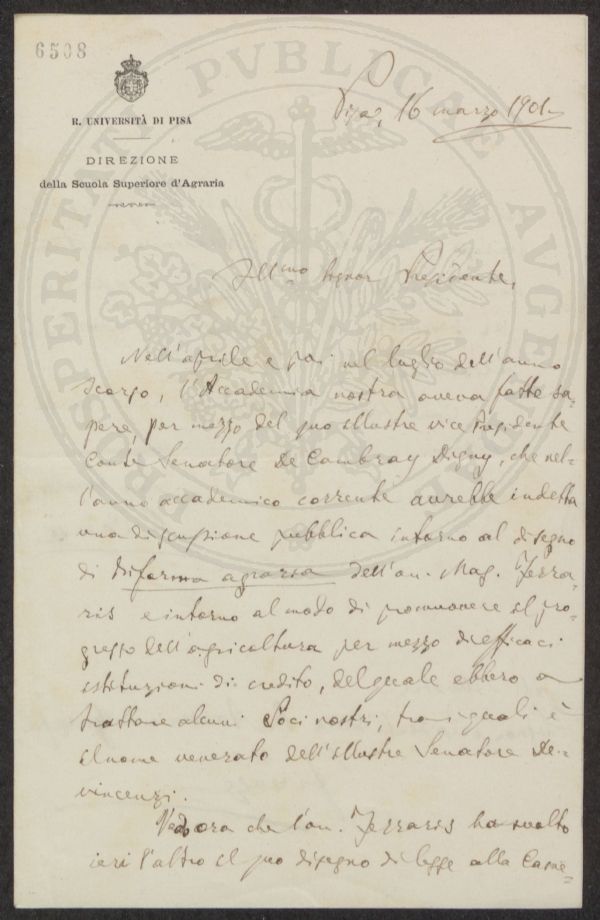 6508
R. UNIVERSITÀ DI PISA
DIREZIONE
della Scuola Superiore d'Agraria
Pisa, 16 marzo 1901
Ill.mo Signor Presidente,
Nell'aprile e poi nel luglio dell'anno
scorso, l'Accademia nostra aveva fatto sa-
pere, per mezzo del suo illustre vice Presidente
Conte Senatore De Cambray Digny, che nel-
l'anno accademico corrente avrebbe indetta
una discussione pubblica intorno al disegno
di riforma agraria dell'on. Mag. Ferra-
ris e intorno al modo di promuovere il pro-
gresso dell'agricoltura per mezzo di efficaci
istituzioni di credito, del quale ebbero a
trattare alcuni Soci nostri, tra i quali è
il nome venerato dell'illustre Senatore De-
vincenzi.
Vedo ora che l'on. Ferraris ha svolto
ieri l'altro il suo disegno di legge alla Came-
PROSPERITATI PVBLICAE AVGENDAE